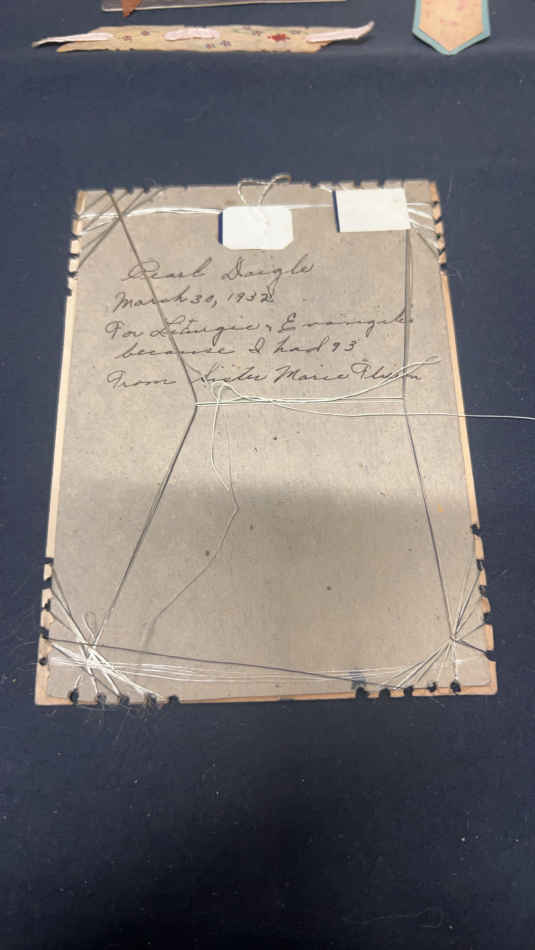 Pearl Daigle
March 30, 1932
For Liturgie & Evangile
because I had 93
From Sister Marie